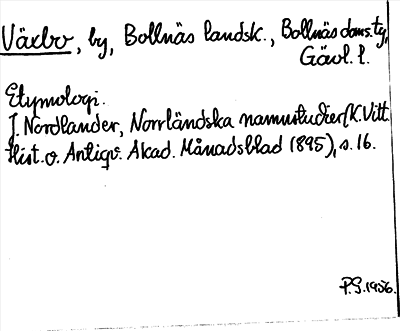 Växbo, by, Bollnäs landsk., Bollnäs doms. tg,
Gävl. l.
Etymologi.
J. Nordlander, Norrländska namnstudier (K. Vitt.
Hist. o. Antiqv. Akad. Månadsblad 1895), s. 16.
P.S. 1956.